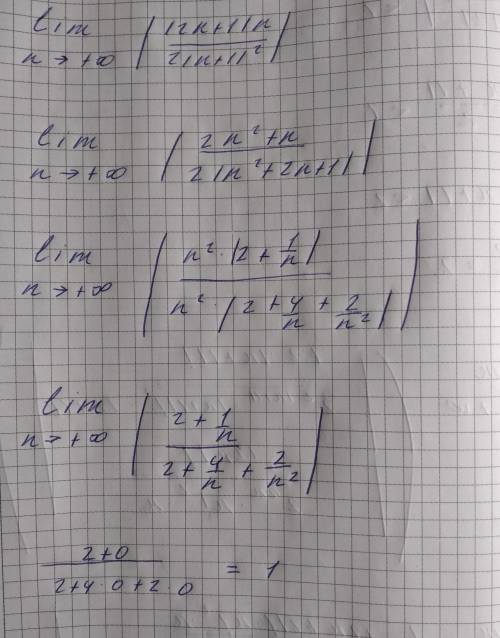 lim n→+∞ | |2n+1|n / 2|n+1|² |
lim n→+∞ | 2n²+n / 2|n²+2n+1| |
lim n→+∞ | n²·|2+1/n| / n²·|2+4/n+2/n²| |
lim n→+∞ | 2+1/n / 2+4/n+2/n² |
2+0 / 2+4·0+2·0 = 1